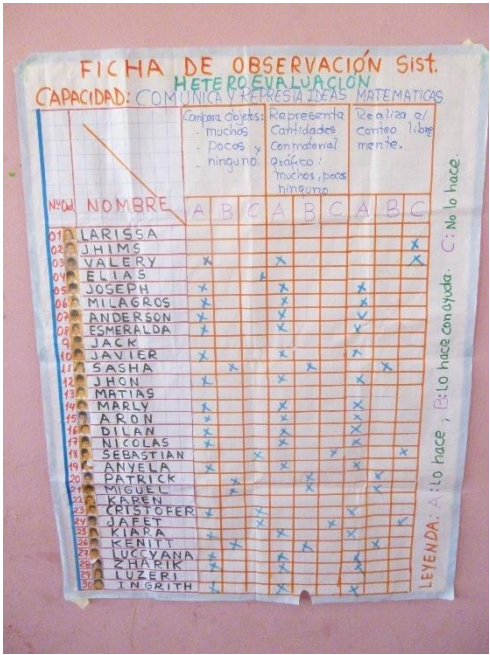 FICHA DE OBSERVACIÓN Sist.
HETEROEVALUACIÓN
CAPACIDAD: COMUNICA Y REPRESTA IDEAS MATEMATICAS
Compara Objetos:
- muchos
- pocos y
- ninguno.
Representa
Cantidades
con material
gráfico:
muchos, pocos
ninguno
Realiza el
conteo libre
mente.
NºOrd NOMBRE A B C A B C A B C
01 LARISSA
02 JHIMS x
03 VALERY x x x
04 ELIAS x
05 JOSEPH x x x
06 MILAGROS x x x
07 ANDERSON x x x
08 ESMERALDA x x x
9 JACK
10 JAVIER x x x
11 SASHA x x x
12 JHON x x x
13 MATIAS
14 MARLY x x x
15 ARON x x x
16 DILAN x x x
17 NICOLAS x x x
18 SEBASTIAN x x x
19 ANYELA x x x
20 PATRICK x x x
21 MIGUEL x x x
22 KAREN
23 CRISTOFER x x x
24 JAFET x x x
25 KIARA x x x
26 KENITT x x x
27 LUCCYANA x x x
28 ZHARIK x x x
29 LUZERI
30 INGRITH x x x
LEYENDA: A: Lo hace; B: Lo hace con ayuda. C: No lo hace.